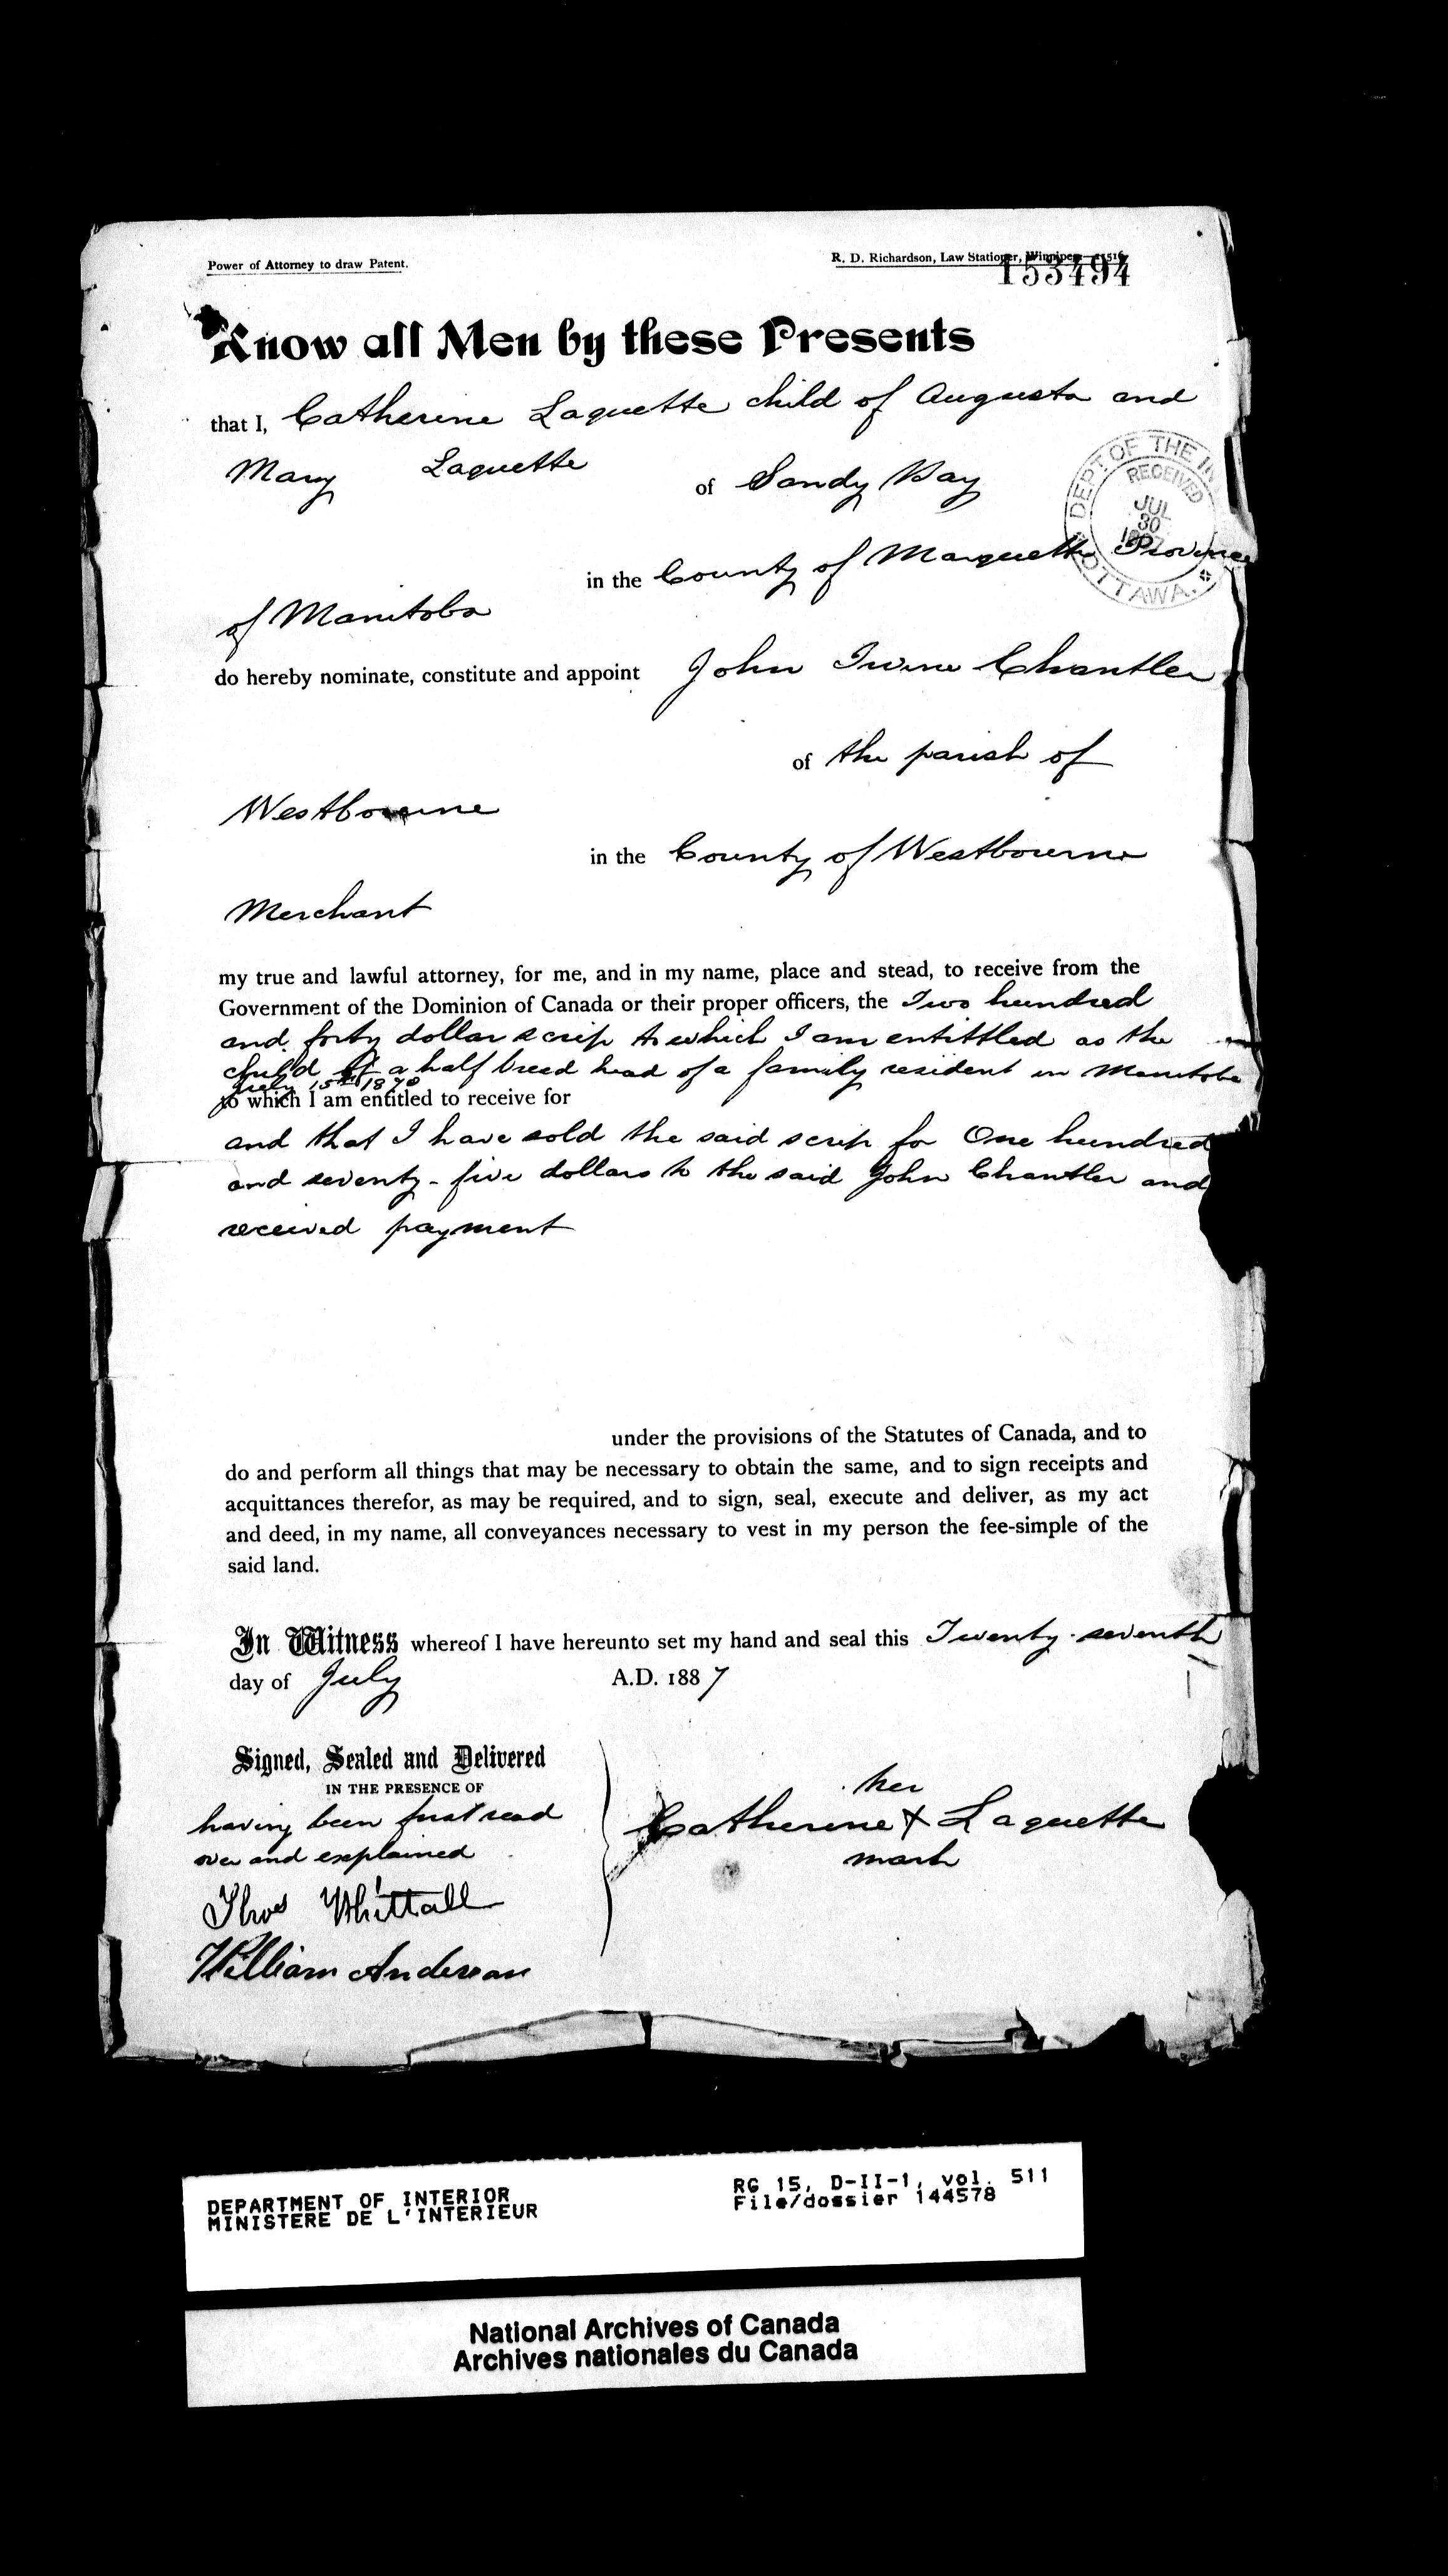 Power of Attorney to draw Patent.
R. D. Richardson, Law Stationer, Winnipeg
153494
Know all Men by these Presents
that I, Catherine Laquette child of Augusta and
Mary Laquette of Sandy Bay
DEPT OF THE IN
RECEIVED
JUL
30
1887
OTTAWA.
in the County of Marquette Province
of Manitoba
do hereby nominate, constitute and appoint John Irvine Chantler
of the parish of
Westbourne
in the County of Westbourne
Merchant
my true and lawful attorney, for me, and in my name, place and stead, to receive from the
Government of the Dominion of Canada or their proper officers, the Two hundred
and forty dollar scrip to which I am entittled as the
child of a half breed head of a family resident in Manitoba
July 15th 1870
to which I am entitled to receive for
and that I have sold the said scrip for One hundred
and seventy-five dollars to the said John Chantler and
received payment
under the provisions of the Statutes of Canada, and to
do and perform all things that may be necessary to obtain the same, and to sign receipts and
acquittances therefor, as may be required, and to sign, seal, execute and deliver, as my act
and deed, in my name, all conveyances necessary to vest in my person the fee-simple of the
said land.
In Witness whereof I have hereunto set my hand and seal this Twenty-seventh
day of July A.D. 1887
Signed, Sealed and Delivered
IN THE PRESENCE OF
having been first read
over and explained
Thos Whittall
William Anderson
her
Catherine X Laquette
mark
DEPARTMENT OF INTERIOR
MINISTERE DE L'INTERIEUR
RG 15, D-II-1, vol. 511
File/dossier 144578
National Archives of Canada
Archives nationales du Canada